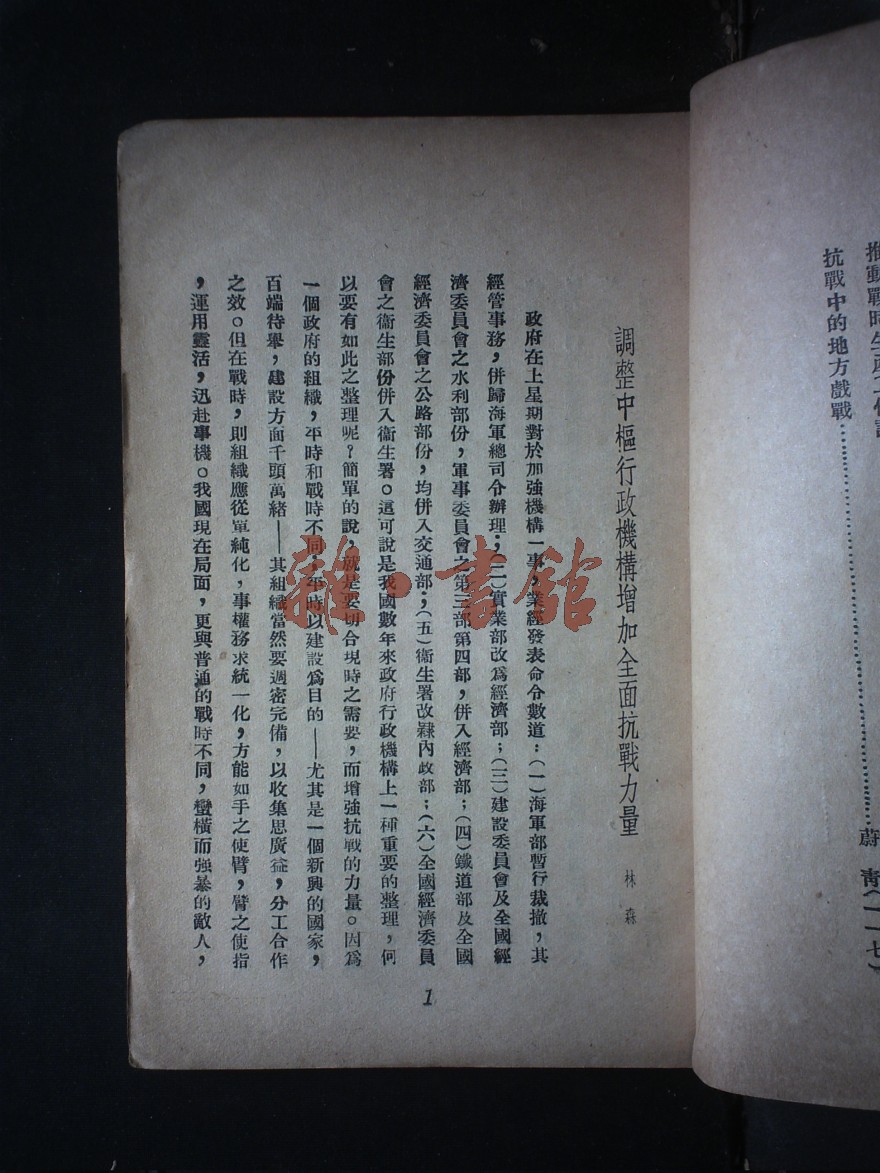 抗戰中的地方戲戰
蔚青(一一七)
調整中樞行政機構增加全面抗戰力量
林森
政府在上星期對於加強機構一事，業經發表命令數道：(一)海軍部暫行裁撤，其
經管事務，併歸海軍總司令辦理；(二)實業部改爲經濟部；(三)建設委員會及全國經
濟委員會之水利部份，軍事委員會之第三部第四部，併入經濟部；(四)鐵道部及全國
經濟委員會之公路部份，均併入交通部；(五)衞生署改隸內政部；(六)全國經濟委員
會之衞生部份併入衞生署。這可說是我國數年來政府行政機構上一種重要的整理，何
以要有如此之整理呢？簡單的說，就是要切合現時之需要，而增強抗戰的力量。因爲
一個政府的組織，平時和戰時不同，平時以建設爲目的——尤其是一個新興的國家，
百端待舉，建設方面千頭萬緒——其組織當然要週密完備，以收集思廣益，分工合作
之效。但在戰時，則組織應從單純化，事權務求統一化，方能如手之使臂，臂之使指
，運用靈活，迅赴事機。我國現在局面，更與普通的戰時不同，蠻橫而強暴的敵人，
1
雜·書館